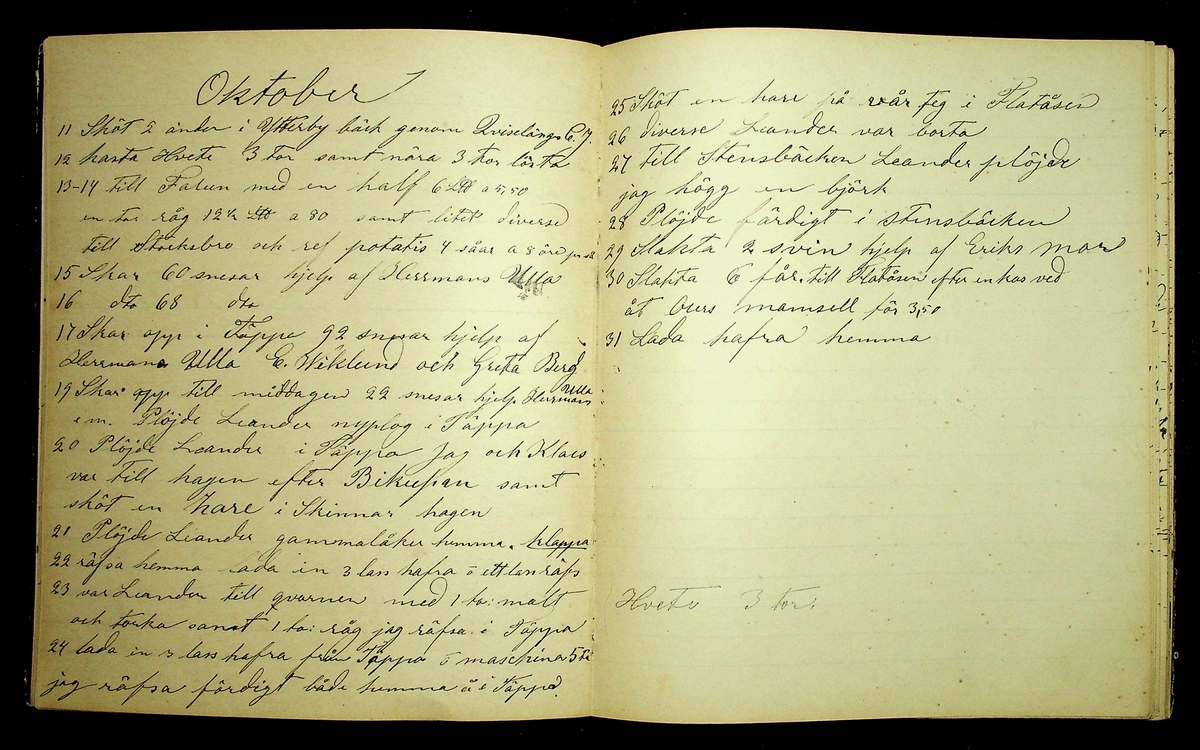 Oktober
11 Sköt 2 änder i Ytterby bäck genom
12 kasta Hvete 3 tor samt nära 3 tor lösta
13-14 till Falun med en half 6 L℔ a 5,50
en to: råg 12½ L℔ a 80 samt litet diverse
till Stocksbro och ref potatis 4 såar a 8 öre
15 Skar 60 snesar hjelp af Herrmans Ulla
16 dto 68 dto
17 Skar opp i Täppa 92 snesar hjelp af
Herrmans Ulla E. Wiklund och Greta Berg
19 Skar opp till middagen 22 snesar hjelp Herrmans Ulla
em. Plöjde Leander nyplog i Täppa
20 Plöjde Leander i Täppa Jag och Klaes
var till hagen efter Bikupan samt
sköt en hare i Skinnar hagen
21 Plöjde Leander gammalåker hemma. klappa
22 räfsa hemma lada in 3 lass hafra o ett lass räfs
23 var Leander till qvarnen med 1 to: malt
och torka samt 1 to: råg jag räfsa i Täppa
24 lada in 3 lass hafra från Täppa o maschina 5
jag räfsa färdigt både hemma å i Täppa.
25 Sköt en hare på vår teg i Flatåsen
26 diverse Leander var borta
27 till Stensbäcken Leander plöjde
jag högg en björk
28 Plöjde färdigt i Stensbäcken
29 Slakta 2 svin hjelp af Eriks mor
30 Slakta 6 får. till Flatåsen efter en kas ved
åt mamsell för 3,50
31 Lada hafra hemma
Hvete 3 tor: